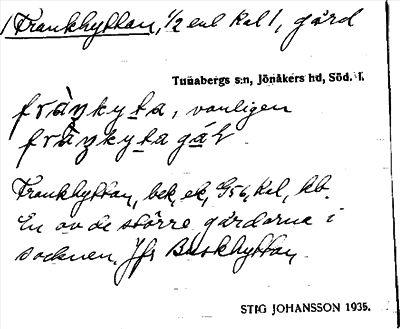 Frankhyttan, 1/2 enl Kal 1, gård
Tunabergs s:n, Jönåkers hd, Söd. l.
fràŋkyta, vanligen
fràŋkytagáɫ.
Frankhyttan, bek, ek, G56, Kal, kb.
En av de större gårdarna i
socknen. Jfr Buskhyttan.
STIG JOHANSSON 1935.